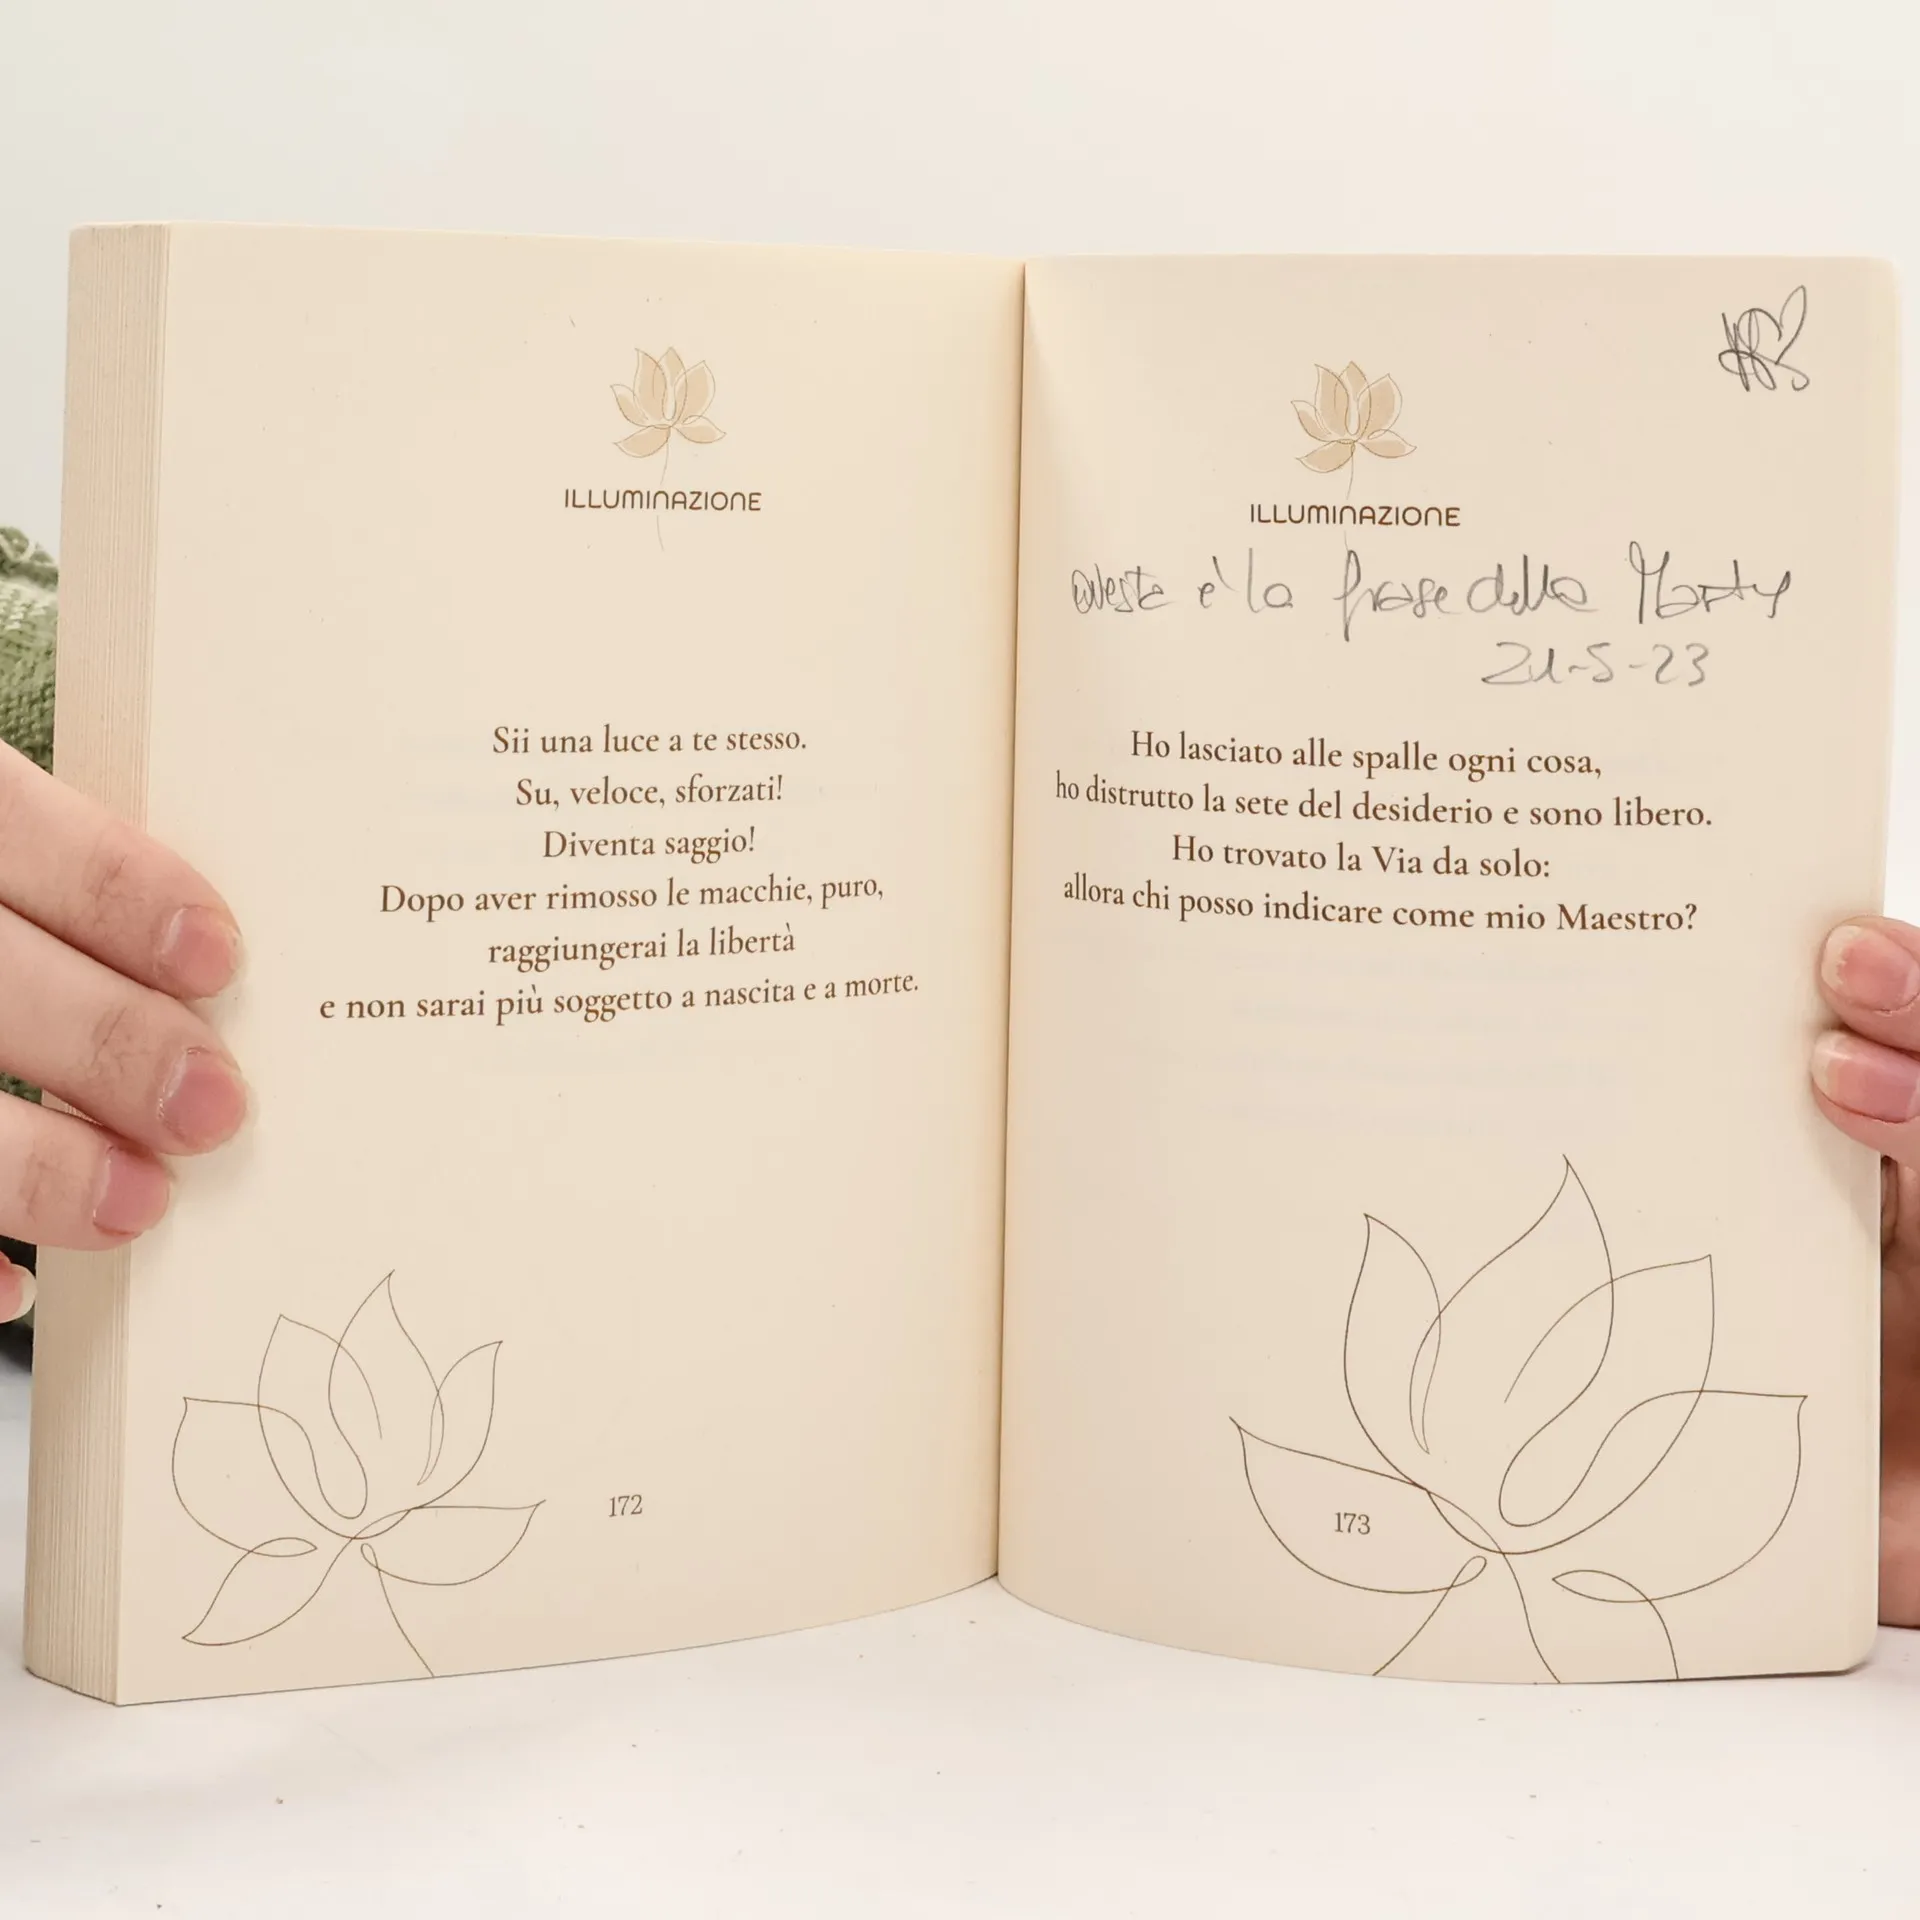 ILLUMINAZIONE
Sii una luce a te stesso.
Su, veloce, sforzati!
Diventa saggio!
Dopo aver rimosso le macchie, puro,
raggiungerai la libertà
e non sarai più soggetto a nascita e a morte.
172
ILLUMINAZIONE
Questa è la frase della Marty
21-5-23
Ho lasciato alle spalle ogni cosa,
ho distrutto la sete del desiderio e sono libero.
Ho trovato la Via da solo:
allora chi posso indicare come mio Maestro?
173